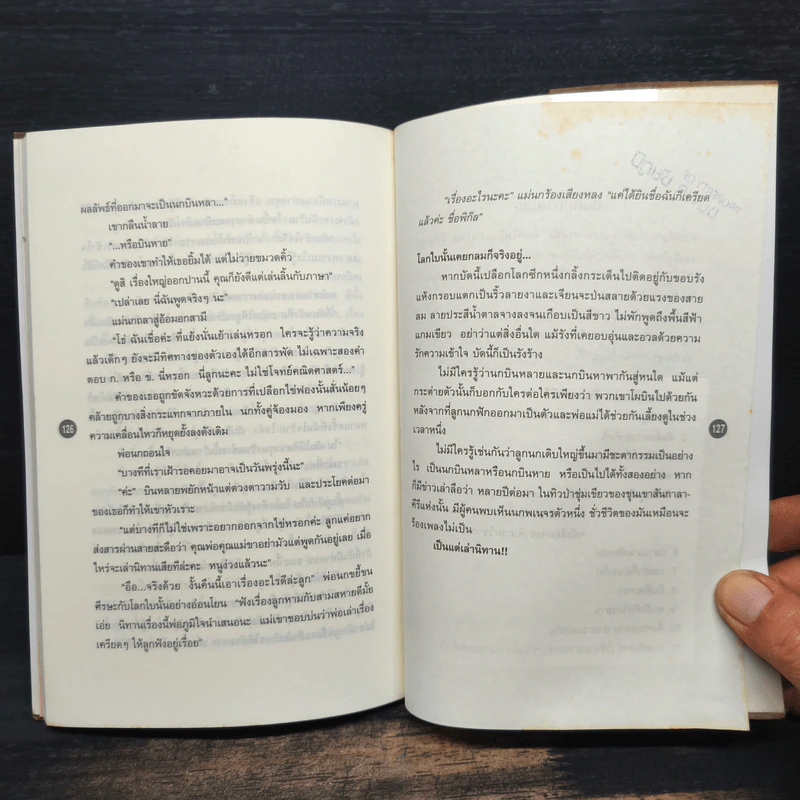 ผลลัพธ์ที่ออกมาจะเป็นนกบินหลา..."
เขากลืนน้ำลาย
"...หรือบินหาย"
คำของเขาทำให้เธอยิ้มได้ แต่ไม่วายขมวดคิ้ว
"ดูสิ เรื่องใหญ่ออกปานนี้ คุณก็ยังดีแต่เล่นลิ้นกับภาษา"
"เปล่าเลย นี่ฉันพูดจริงๆ นะ"
แม่นกถลาสู่อ้อมอกสามี
"โธ่ ฉันเชื่อค่ะ ที่แย้งนั่นเย้าเล่นหรอก ใครจะรู้ว่าความจริง
แล้วเด็กๆ ยังจะมีทิศทางของตัวเองได้อีกสารพัด ไม่เฉพาะสองคำ
ตอบ ก. หรือ ข. นี่หรอก นี่ลูกนะคะ ไม่ใช่โจทย์คณิตศาสตร์..."
คำของเธอถูกขัดจังหวะด้วยการที่เปลือกไข่ฟองนั้นสั่นน้อยๆ
คล้ายถูกบางสิ่งกระแทกจากภายใน นกทั้งคู่จ้องมอง หากเพียงครู่
ความเคลื่อนไหวก็หยุดยั้งลงดังเดิม
พ่อนกถอนใจ
"บางทีที่เราเฝ้ารอคอยมาอาจเป็นวันพรุ่งนี้นะ"
"ค่ะ" บินหลายพยักหน้าแต่ดวงตาวามวับ และประโยคต่อมา
ของเธอก็ทำให้เขาหัวเราะ
"แต่บางทีก็ไม่ใช่เพราะอยากออกจากไข่หรอกค่ะ ลูกแค่อยาก
ส่งสารผ่านสายสะดือว่า คุณพ่อคุณแม่ขาอย่ามัวแต่พูดกันอยู่เลย เมื่อ
ไหร่จะเล่านิทานเสียทีล่ะคะ หนูง่วงแล้วนะ"
"อือ...จริงด้วย งั้นคืนนี้เอาเรื่องอะไรดีล่ะลูก" พ่อนกขยี้ขน
ศีรษะกับโลกใบนั้นอย่างอ่อนโยน "ฟังเรื่องลูกหามกับสามสหายดีมั้ย
เอ่ย นิทานเรื่องนี้พ่อภูมิใจนำเสนอนะ แม่เขาชอบบ่นว่าพ่อเล่าเรื่อง
เครียดๆ ให้ลูกฟังอยู่เรื่อย"
126
"เรื่องอะไรนะคะ" แม่นกร้องเสียงหลง "แค่ได้ยินชื่อฉันก็เครียด
แล้วค่ะ ชื่อพิกึล"
โลกใบนั้นเคยกลมก็จริงอยู่...
หากบัดนี้เปลือกโลกซีกหนึ่งกลิ้งกระเด็นไปติดอยู่กับขอบรัง
แห้งกรอบแตกเป็นริ้วลายงาและเจียนจะป่นสลายด้วยแรงของสาย
ลม ลายประสีน้ำตาลจางลงจนเกือบเป็นสีขาว ไม่พักพูดถึงพื้นสีฟ้า
แกมเขียว อย่าว่าแต่สิ่งอื่นใด แม้รังที่เคยอบอุ่นและอวลด้วยความ
รักความเข้าใจ บัดนี้ก็เป็นรังร้าง
ไม่มีใครรู้ว่านกบินหลายและนกบินหาพากันสู่หนใด แม้แต่
กระต่ายตัวนั้นก็บอกกับใครต่อใครเพียงว่า พวกเขาโผบินไปด้วยกัน
หลังจากที่ลูกนกฟักออกมาเป็นตัวและพ่อแม่ได้ช่วยกันเลี้ยงดูในช่วง
เวลาหนึ่ง
ไม่มีใครรู้เช่นกันว่าลูกนกเติบใหญ่ขึ้นมามีชะตากรรมเป็นอย่าง
ไร เป็นนกบินหลาหรือนกบินหาย หรือเป็นไปได้ทั้งสองอย่าง หาก
ก็มีข่าวเล่าลือว่า หลายปีต่อมา ในทิวป่าชุ่มเขียวของขุนเขาสันกาลา-
คีรีแห่งนั้น มีผู้คนพบเห็นนกพเนจรตัวหนึ่ง ชั่วชีวิตของมันเหมือนจะ
ร้องเพลงไม่เป็น
เป็นแต่เล่านิทาน!!
127